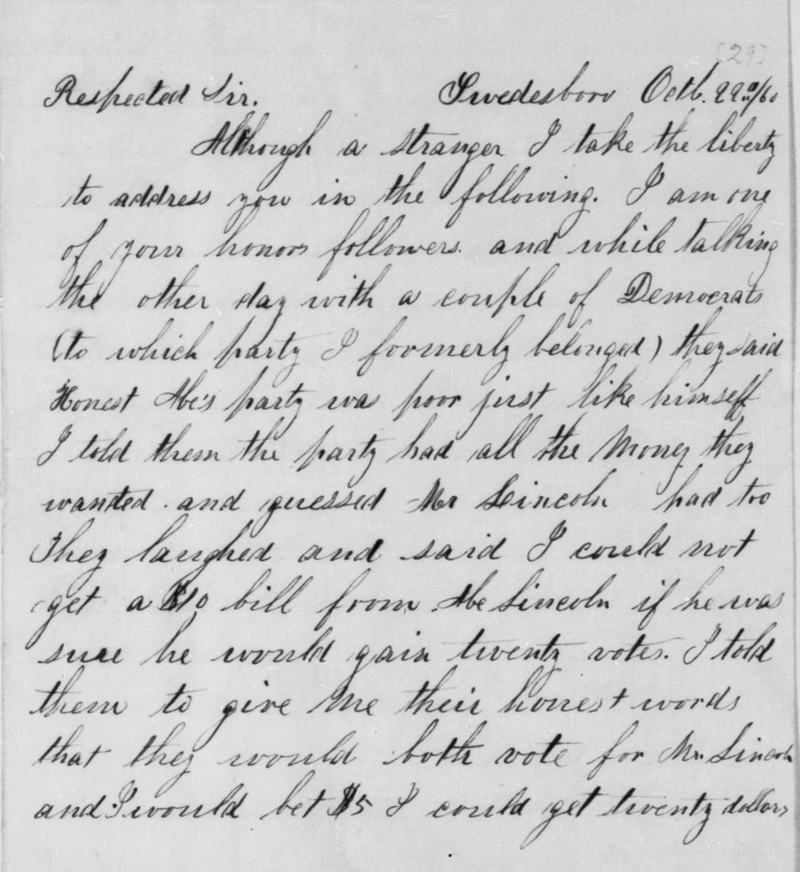 [29]
Respected Sir. Swedesboro Octb. 22nd/60
Although a stranger I take the liberty
to address you in the following. I am one
of your honors followers. and while talking
the other day with a couple of Democrats
(to which party I foormerly belonged) they said
Honest Abe's party was poor just like himself
I told them the party had all the Money they
wanted. and guessed Mr Lincoln had too
They laughed and said I could not
get a $10 bill from Abe Lincoln if he was
sure he would gain twenty votes. I told
them to give me their honest words
that they would both vote for Mr. Lincoln
and I would bet $5 I could get twenty dollars